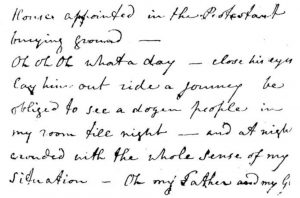 Houses appointed in the Protestant
burying ground —
Oh Oh Oh what a day — close his eyes
lay him out ride a journey be
obliged to see a dozen people in
my room till night — and at night
crowded with the whole sense of my
situation — Oh my Father and my G